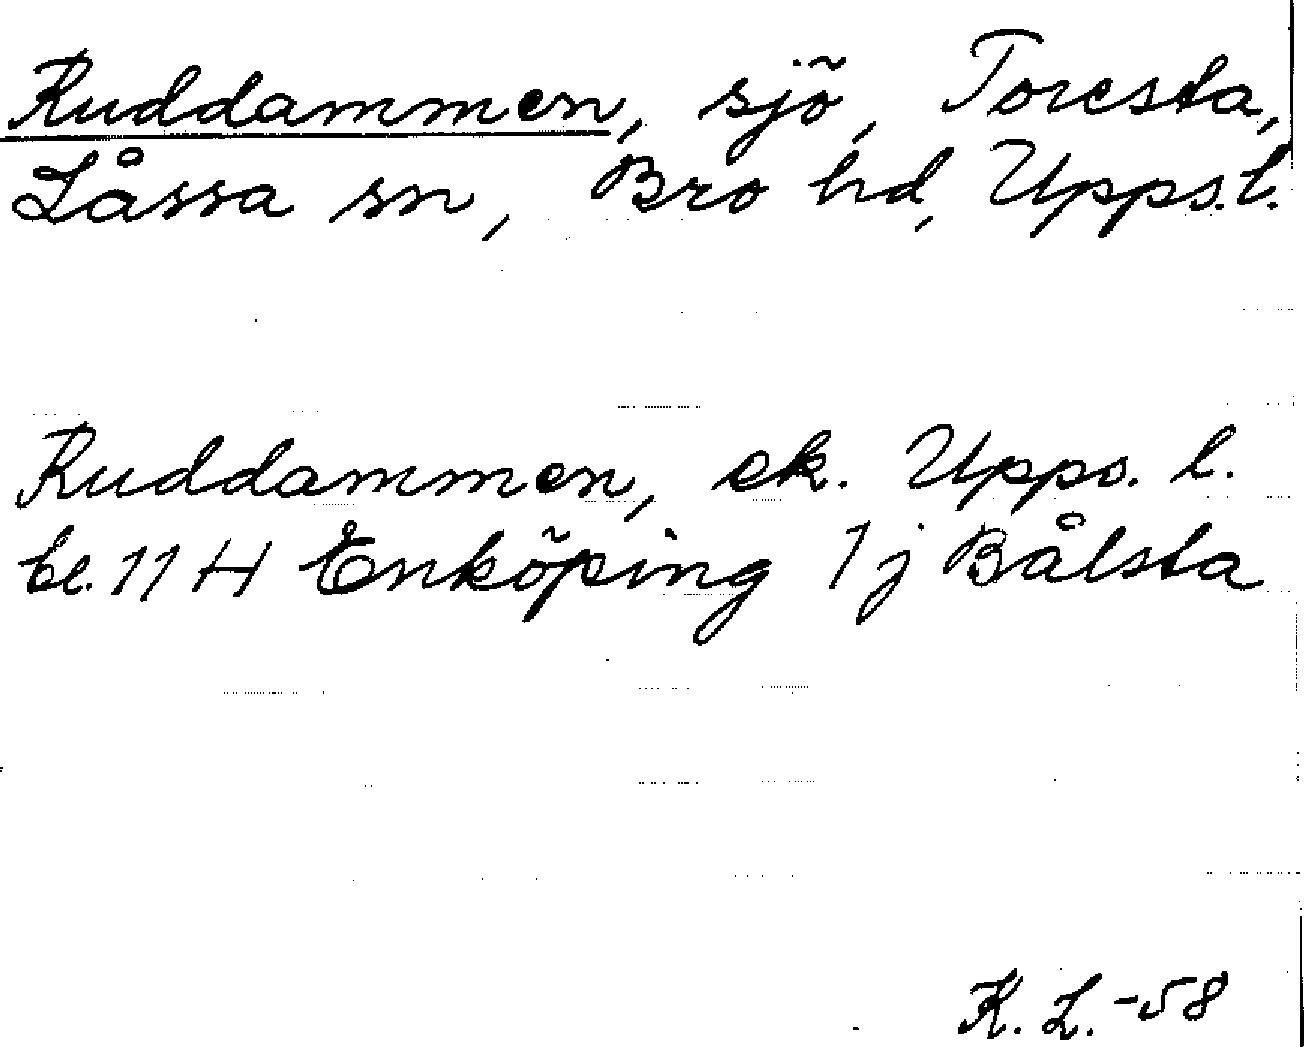 Ruddammen, sjö, Toresta,
Låssa sn, Bro hd, Upps.l.
Ruddammen, ek. Upps. l.
bl. 11 H Enköping 1 j Bålsta
K. L. -58